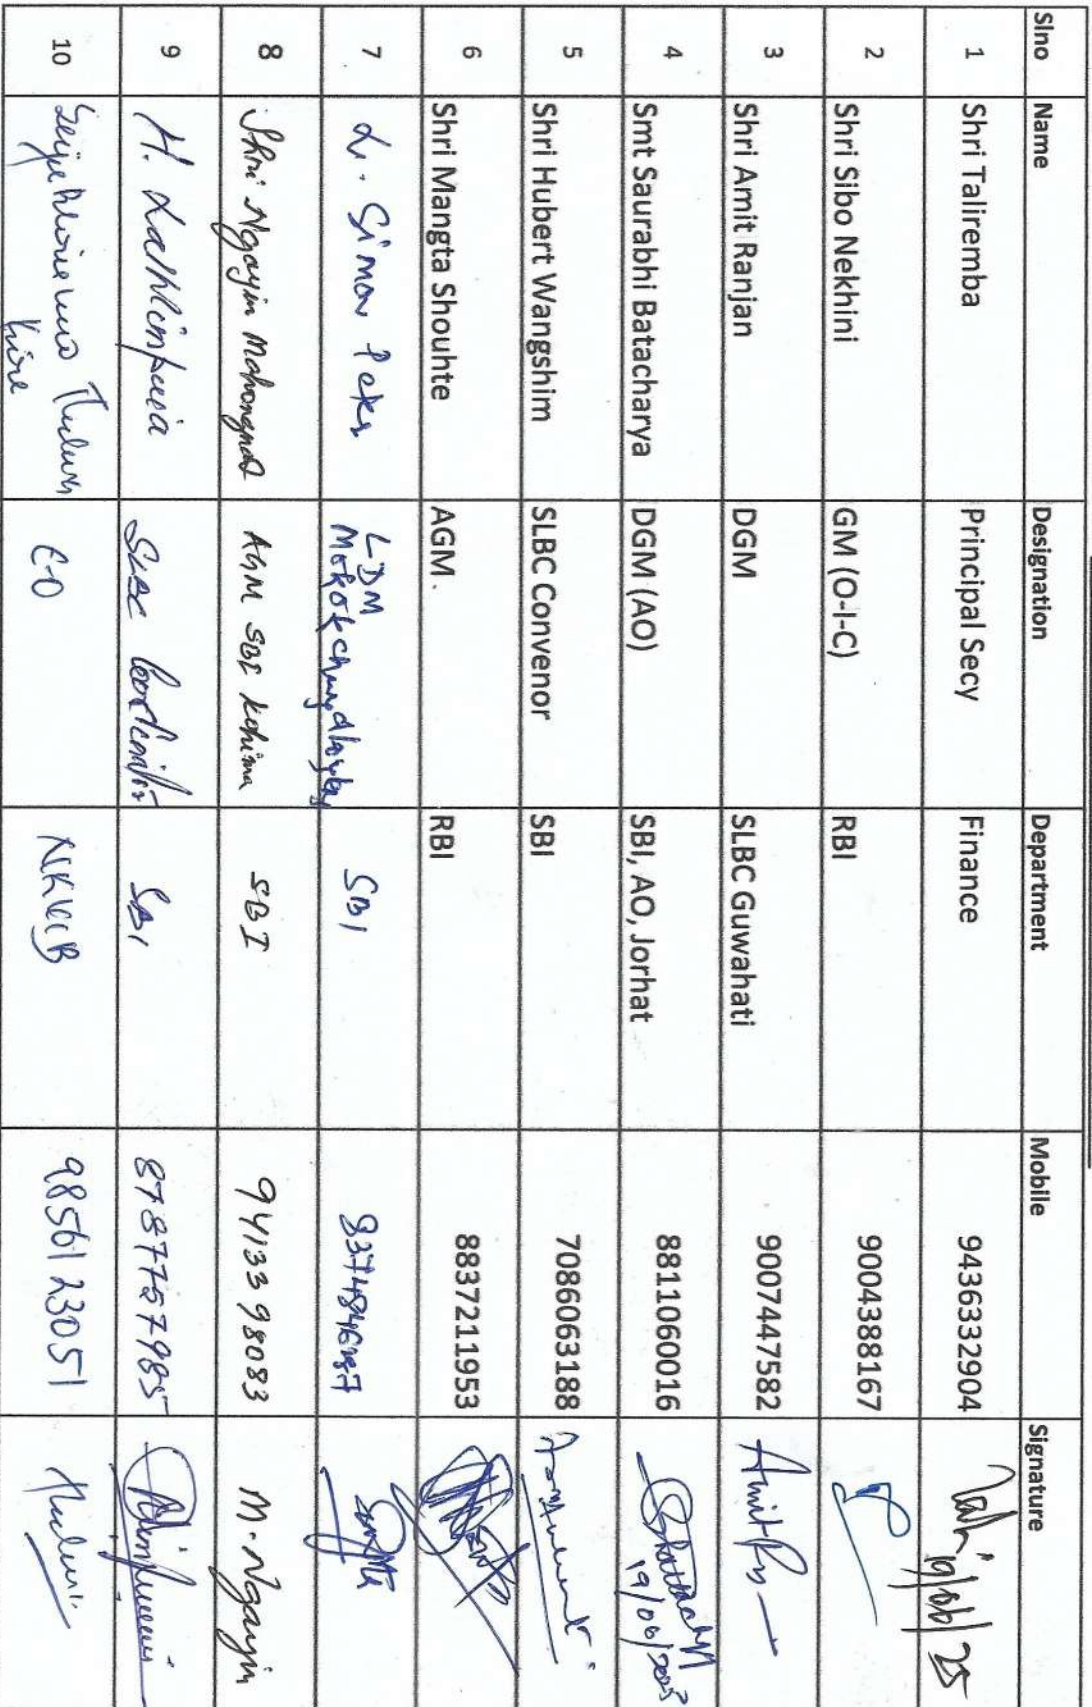 Slno Name Designation Department Mobile Signature
1 Shri Taliremba Principal Secy Finance 9436332904 19/06/25
2 Shri Sibo Nekhini GM (O-I-C) RBI 9004388167
3 Shri Amit Ranjan DGM SLBC Guwahati 9007447582
4 Smt Saurabhi Batacharya DGM (AO) SBI, AO, Jorhat 8811060016 19/06/2025
5 Shri Hubert Wangshim SLBC Convenor SBI 7086063188
6 Shri Mangta Shouhte AGM. RBI 8837211953
7 L. Simon Peter LDM SBI
Mokokchung
8 Shri Ngayin AGM SBI Kohima SBI 9413398083 M. Ngayin
9 H. SLBC SBI 8787757985
10 9856123051
Kire